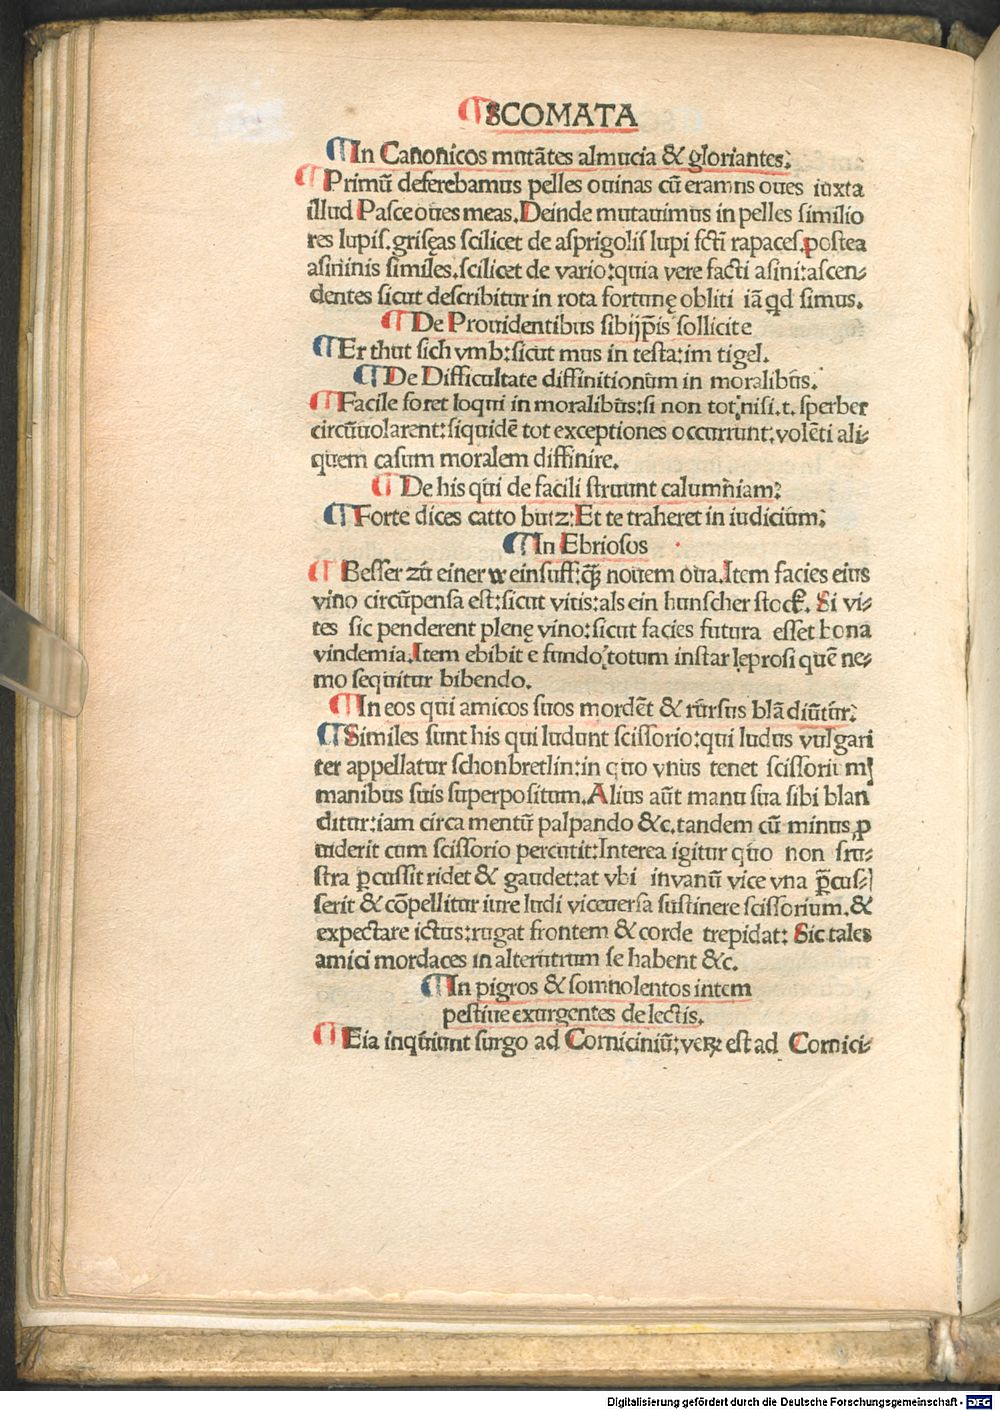 ¶SCOMATA
¶In Canonicos mutātes almucia & gloriantes:
¶Primū deferebamus pelles ouinas cū eramns oues iuxta
illud Pasce oues meas. Deinde mutauimus in pelles similio
res lupis. grisęas scilicet de asprigolis lupi fcti rapaces. postea
asininis similes. scilicet de vario: quia vere facti asini: ascen-
dentes sicut describitur in rota fortunę obliti iā qd simus.
¶De Prouidentibus sibijpīs sollicite
¶Er thut sich vmb: sicut mus in testa: im tigel.
¶De Difficultate diffinitionum in moralibus.
¶Facile foret loqui in moralibus: si non tot: nisi. t. sperber
circūuolarent: siquidē tot exceptiones occurrunt: volēti ali-
quem casum moralem diffinire.
¶De his qui de facili struunt calumniam:
¶Forte dices catto butz: Et te traheret in iudicium:
¶In Ebriosos
¶Besser zū einer weinsuff: q̄ȝ nouem oua. Item facies eius
vino circūpensa est: sicut vitis: als ein hunscher stock. Si vi-
tes sic penderent plenę vino: sicut facies futura esset bona
vindemia. Item ebibit e fundo totum instar leprosi quē ne-
mo sequitur bibendo.
¶In eos qui amicos suos mordēt & rursus blādiūtur:
¶Similes sunt his qui ludunt scissorio: qui ludus vulgari
ter appellatur schonbretlin: in quo vnus tenet scissoriū
manibus suis superpositum. Alius aūt manu sua sibi blan
ditur: iam circa mentū palpando &c. tandem cū minus ꝓ
uiderit cum scissorio percutit: Interea igitur quo non fru-
stra ꝑcussit ridet & gaudet: at vbi in vanū vice vna ꝑcus-
serit & cōpellitur iure ludi viceuersa sustinere scissorium. &
expectare ictus: rugat frontem & corde trepidat: Sic tales
amici mordaces in alterutrum se habent &c.
¶In pigros & somnolentos intem
pestiue exurgentes de lectis.
¶Eia inquiunt surgo ad Corniciniū: veꝝ est ad Cornici-
Digitalisierung gefördert durch die Deutsche Forschungsgemeinschaft - DFG